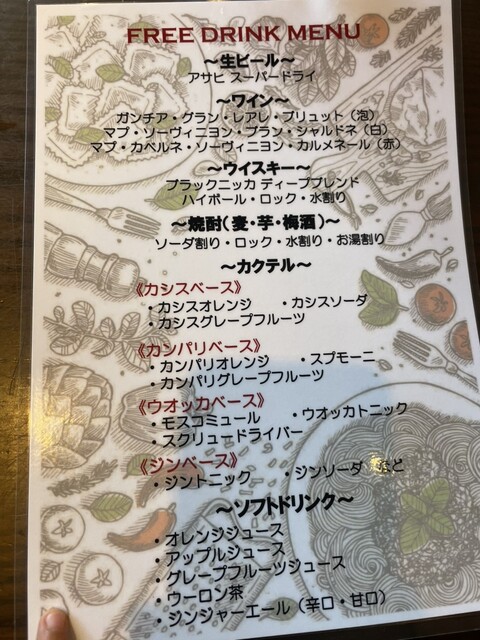 FREE DRINK MENU
～生ビール～
アサヒ スーパードライ
～ワイン～
ガンチア・グラン・レアレ・ブリュット（泡）
マプ・ソーヴィニヨン・ブラン・シャルドネ（白）
マプ・カベルネ・ソーヴィニヨン・カルメネール（赤）
～ウイスキー～
ブラックニッカ ディープブレンド
ハイボール・ロック・水割り
～焼酎（麦・芋・梅酒）～
ソーダ割り・ロック・水割り・お湯割り
～カクテル～
《カシスベース》
・カシスオレンジ ・カシスソーダ
・カシスグレープフルーツ
《カンパリベース》
・カンパリオレンジ ・スプモーニ
・カンパリグレープフルーツ
《ウオッカベース》
・モスコミュール ・ウオッカトニック
・スクリュードライバー
《ジンベース》
・ジントニック ・ジンソーダ など
～ソフトドリンク～
・オレンジジュース
・アップルジュース
・グレープフルーツジュース
・ウーロン茶
・ジンジャーエール（辛口・甘口）